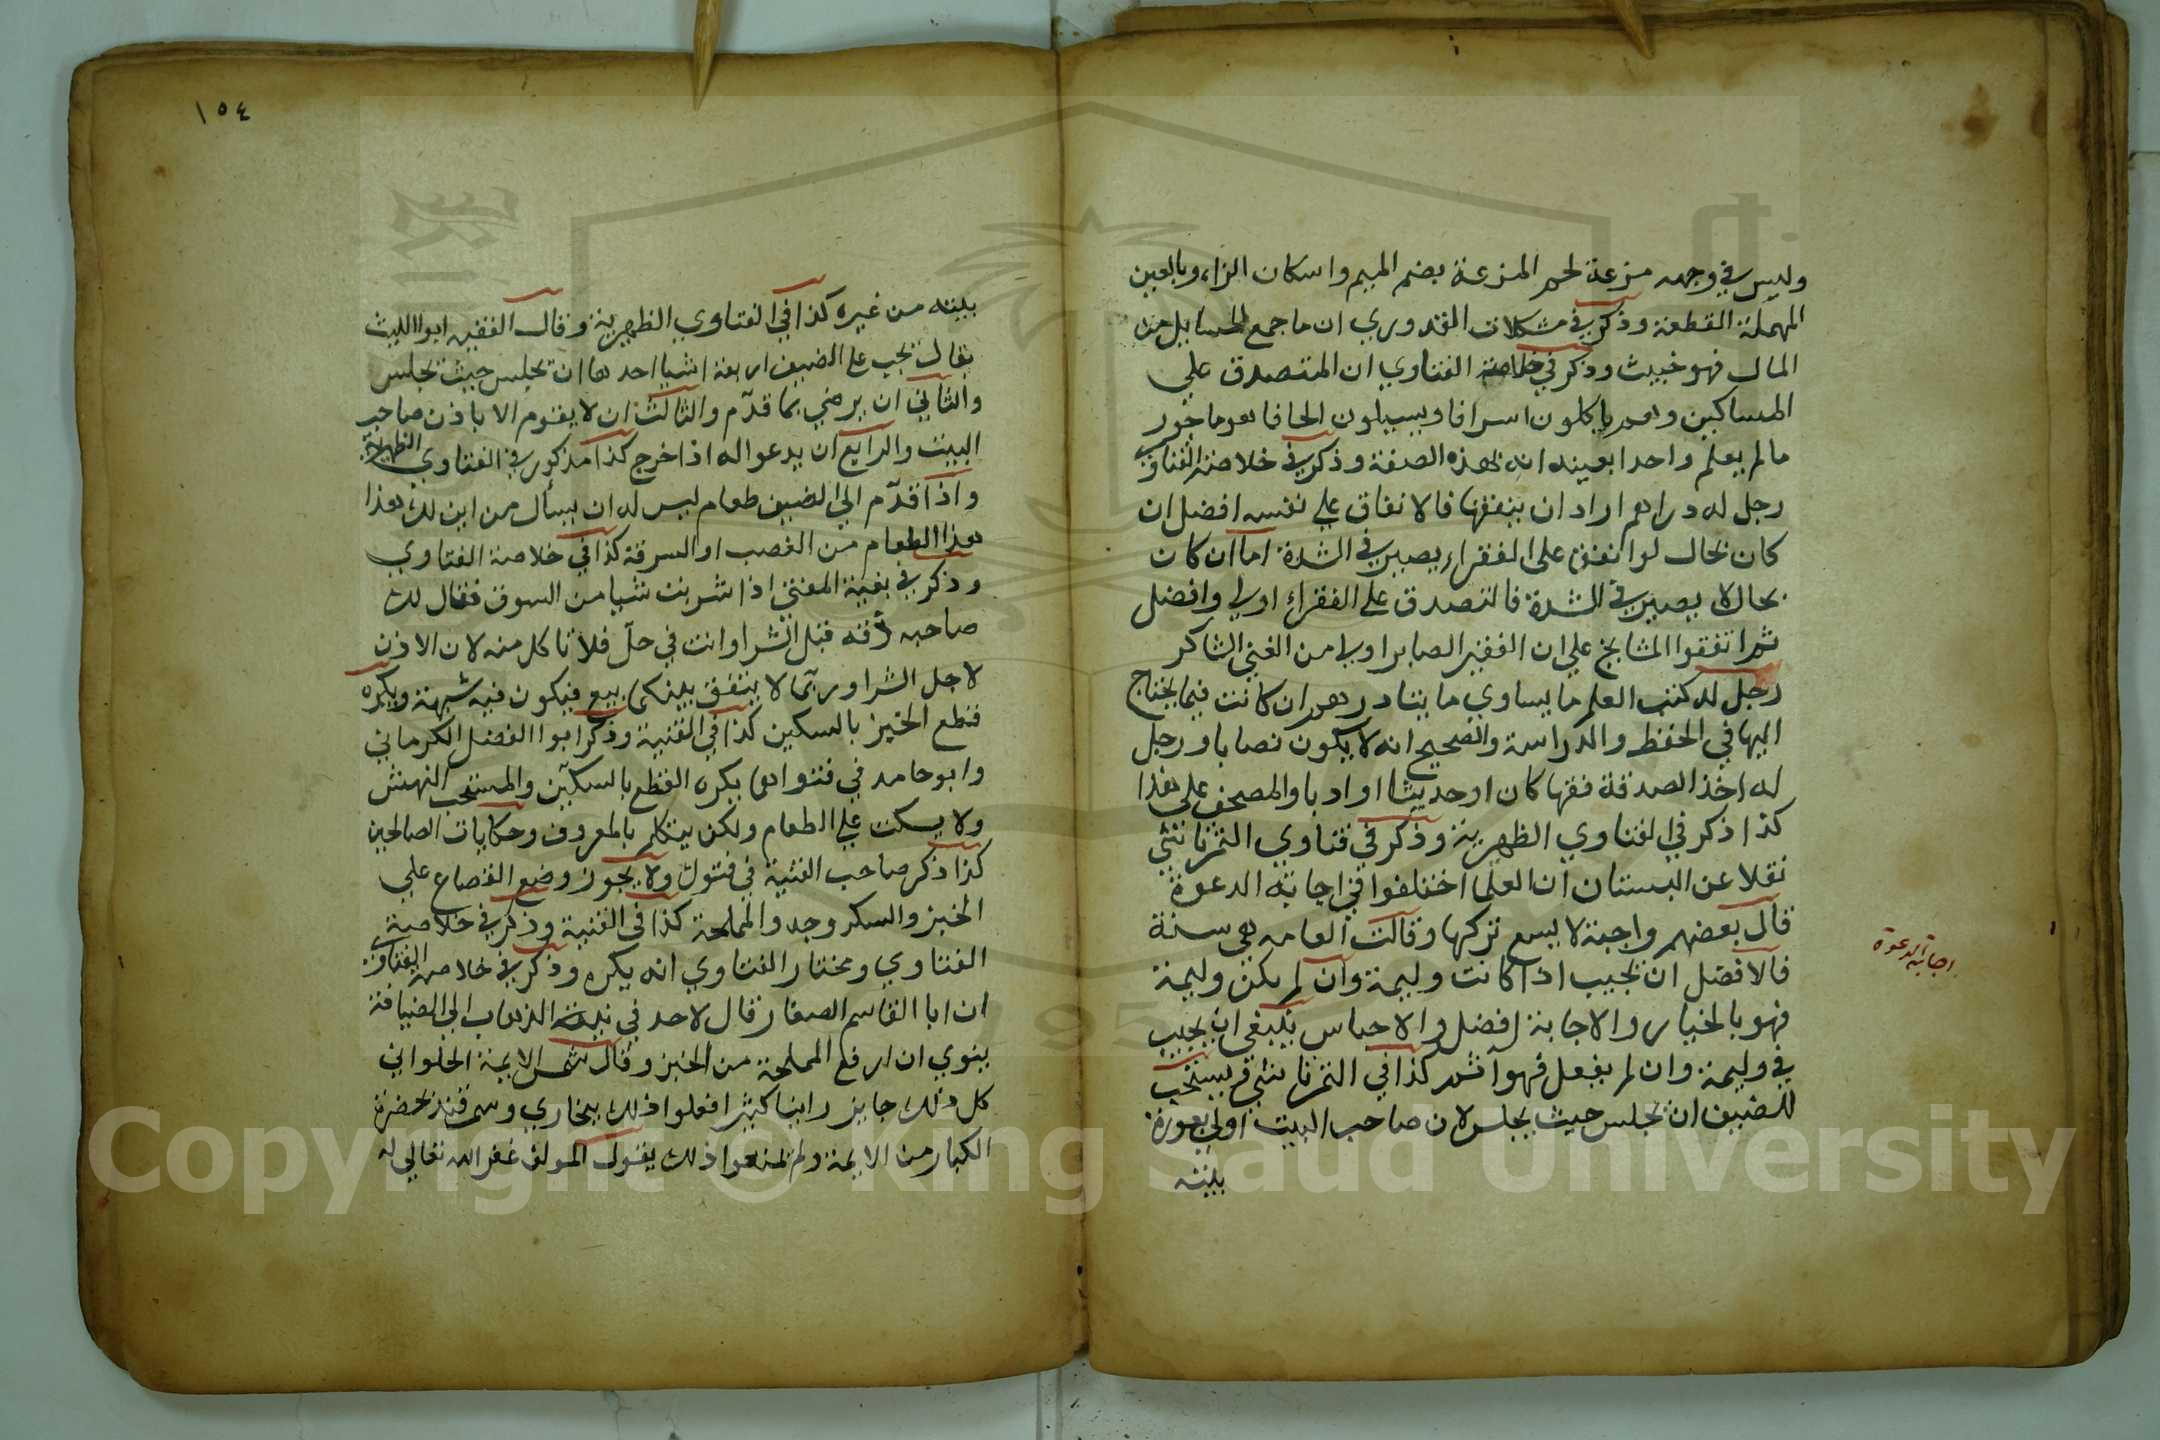 وليس في وجهه مزعة لحم المزعة بضم الميم واسكان الزاء وبالعين
المهملة القطعة وذكر في مشكلات القدوري ان ما جمع السايل من
المال فهو خبيث وذكر في خلاصة الفتاوي ان المتصدق علي
المساكين وهم ياكلون اسرافا ويسيلون الحافا هو ماجور
مالم يعلم واحدا بعينه انه بهذه الصفة وذكر في خلاصة الفتاوي
رجل له دراهم اراد ان ينفقها فالانفاق علي نفسه افضل ان
كان بحال لو انفق علي الفقراء يصبر في الشدة اما ان كان
بحال لا يصبر في الشدة فالتصدق علي الفقراء اولي وافضل
ثم اتفقوا المشايخ علي ان الفقير الصابر اولي من الغني الشاكر
رجل له كتب العلم ما يساوي مايتا درهم ان كانت فيما يحتاج
اليها في الحفظ والدراسة والصحيح انه لا يكون نصابا ورجل
له اخذ الصدقة فقها كان او حديثا او ادبا والمصحف علي هذا
كذا ذكر في الفتاوي الظهرية وذكر في فتاوي التمرتاشي
نقلا عن البستان ان العلما اختلفوا في اجابة الدعوة
قال بعضهم واجبة لا يسع تركها وقالت العامه هي سنة
فالافضل ان تجيب اذا كانت وليمة وان لم يكن وليمة
فهو بالخيار والاجابة افضل والاحباس ينبغي ان يجيب
في وليمة وان لم يفعل فهو آثم كذا في التمرتاشي ويستحب
للضيف ان يجلس حيث يجلس لان صاحب البيت اولي بعورة
بيته
اجابة الدعوة
١٥٤
بيته من غيره كذا في الفتاوي الظهرية وقال الفقيه ابوا الليث
يقال يجب علي الضيف اربعة اشيا احدها ان تجلس حيث تجلس
والثاني ان يرضي بما قدّم والثالث ان لا يقوم الا باذن صاحب
البيت والرابع ان يدعو اله اذا خرج كذا مذكور في الفتاوي الظهرية
واذا قدّم الي الضيف طعام ليس له ان يسأل من اين لك هذا
هذا الطعام من الغصب او السرقة كذا في خلاصة الفتاوي
وذكر في بغية المغني اذا شريت شيا من السوق فقال لك
صاحبه ذقه قبل الشرا وانت في حلّ فلا تاكل منه لان الاذن
لاجل الشرا وربما لا يتفق بينكما بيع فيكون فيه شبهة ويكره
قطع الخبز بالسكين كذا في القنية وذكر ابوا الفضل الكرماني
وابو حامد في فتواهما يكره القطع بالسكين والمستحب النهش
ولا يسكت علي الطعام ولكن يتكلم بالمعروف وحكايات الصالحين
كذا ذكر صاحب القنية في فتول ولا يجوز وضع القصاع علي
الخبز والسكر وجد والمملحة كذا في القنية وذكر في خلاصة
الفتاوي ومختار الفتاوي انه يكره وذكر في خلاصة الفتاوي
ان ابا القاسم الصفار قال لاحد في نية الذهاب الي الضيافة
ينوي ان ارفع المملحة من الخبز وقال شمس الايمة الحلواني
كل ذلك جايز راينا كثيرا فعلوا ذلك ببخاري وسمرقند بحضرة
الكبار من الايمة ولم يمنعوا ذلك يقول المولف غفر الله تعالي له
Copyright © King Saud University